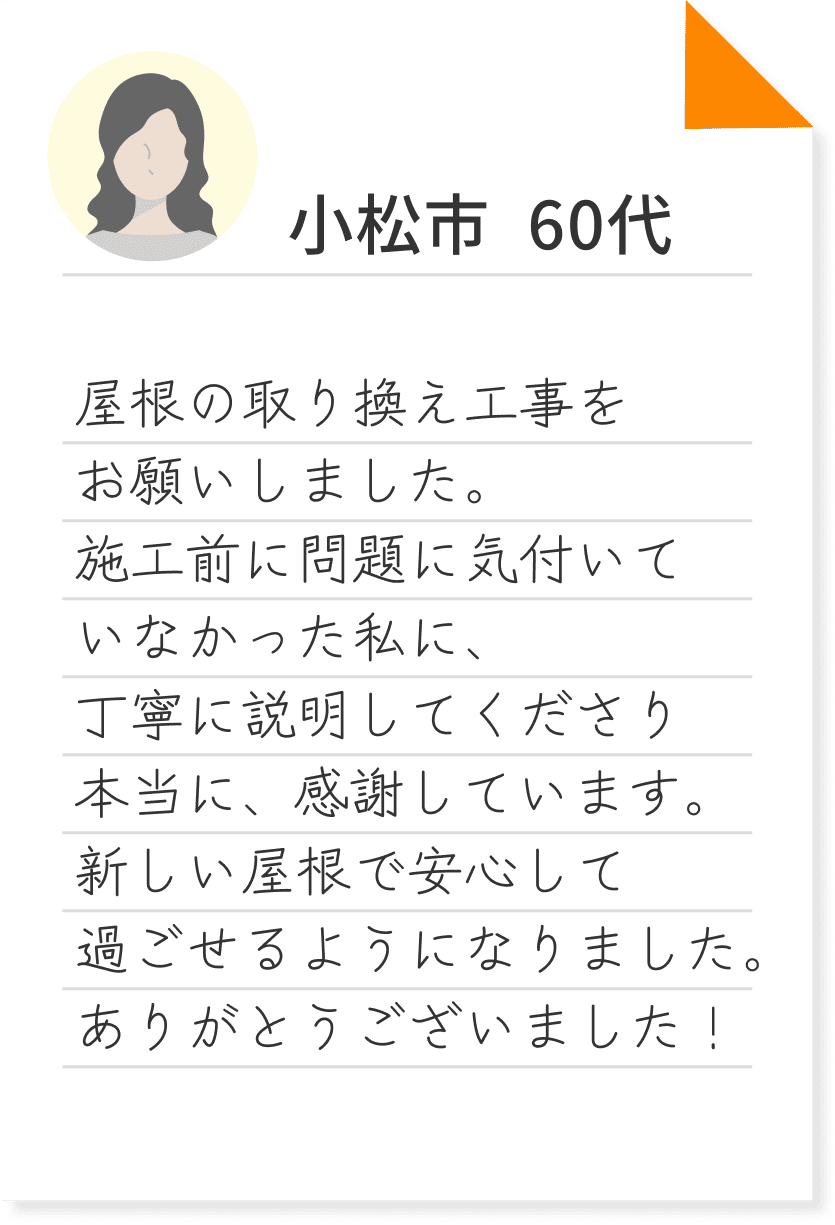 小松市 60代
屋根の取り換え工事を
お願いしました。
施工前に問題に気付いて
いなかった私に、
丁寧に説明してくださり
本当に、感謝しています。
新しい屋根で安心して
過ごせるようになりました。
ありがとうございました！